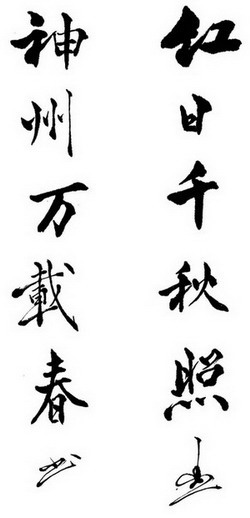 红日千秋照
神州万载春